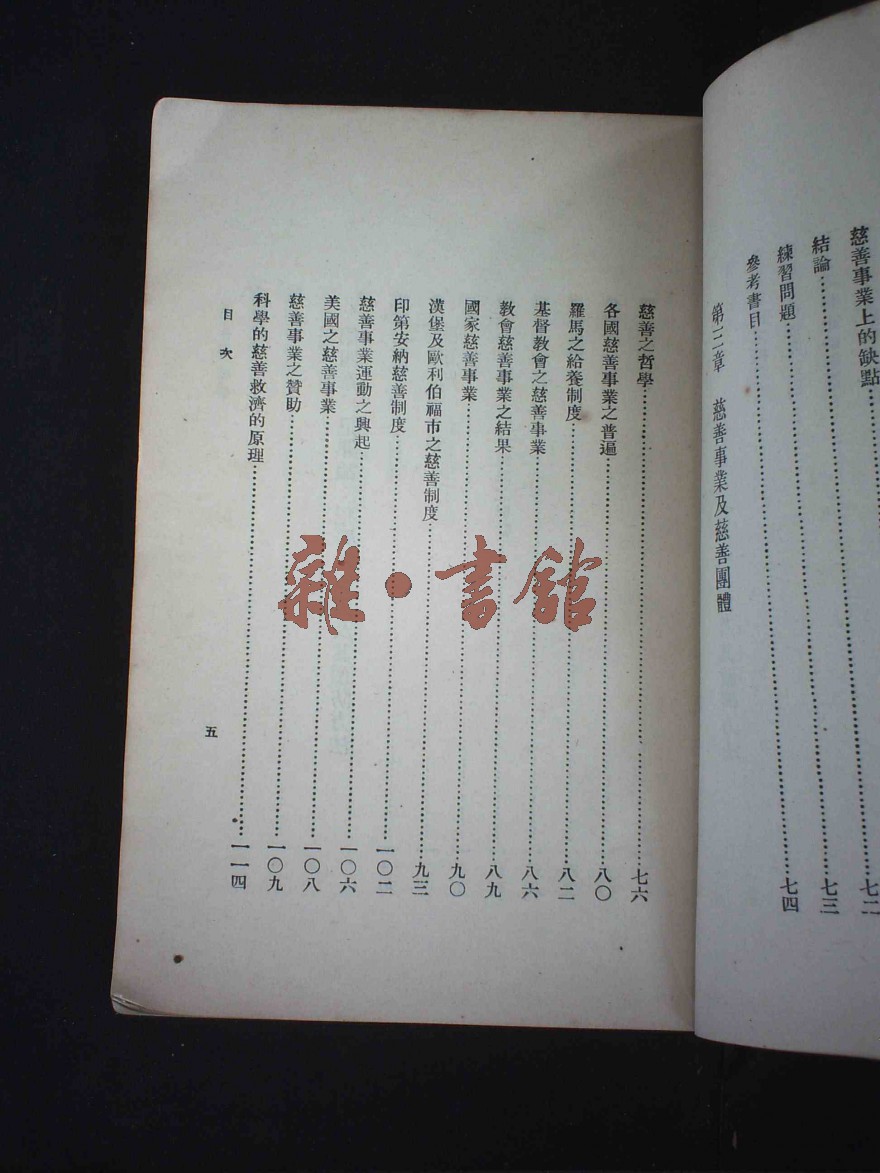 慈善事業上的缺點……七二
結論……七三
練習問題……七四
參考書目……
第三章　慈善事業及慈善團體
慈善之哲學……七六
各國慈善事業之普遍……八〇
羅馬之給養制度……八二
基督教會之慈善事業……八六
教會慈善事業之結果……八九
國家慈善事業……九〇
漢堡及歐利伯福市之慈善制度……九三
印第安納慈善制度……一〇二
慈善事業運動之興起……一〇六
美國之慈善事業……一〇八
慈善事業之贊助……一〇九
科學的慈善救濟的原理……一一四
目次
五
雜·書館